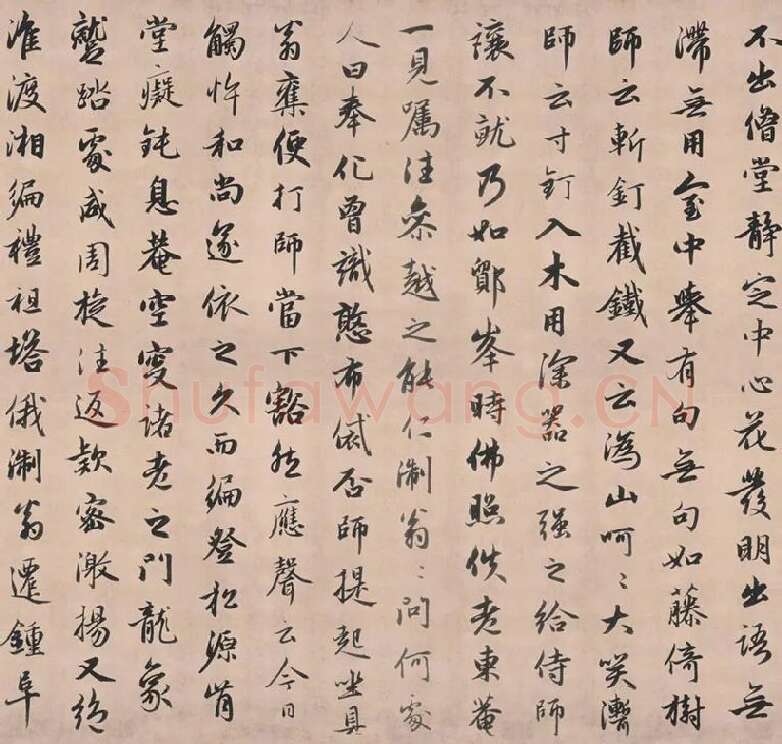 不出僧堂靜定中心花發明出語無
滯無用室中舉有句無句如藤倚樹
師云斬釘截鐵又云溈山呵〻大笑漸
師云寸釘入木用深器之强之給侍師
讓不就乃如鄮峯時佛照佚老東菴
一見囑注叅越之能仁淛翁〻問何處
人曰奉化曾識憨布帒否師提起坐具
翁集便打師當下豁然應聲云今日
觸忤和尚遂依之久而徧登松源肯
堂癡鈍息菴空叟諸老之門龍象
蹴踏處咸周旋注返欵密激揚又絶
淮渡湘徧禮祖塔俄淛翁遷鍾阜
Shufawang.CN